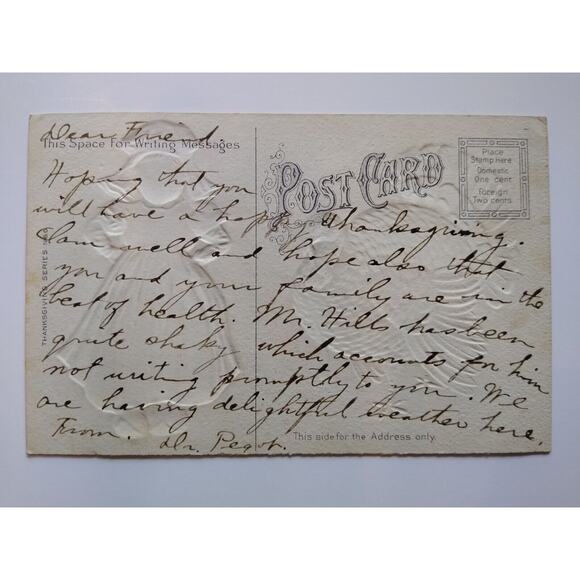 Dear Friend.
This Space For Writing Messages
POST CARD
Place
Stamp Here
Domestic
One cent
Foreign
Two cents
Hoping that you
will have a happy thanksgiving.
I am well and hope also that
you and your family are in the
best of health. Mr. Hills has been
quite shaky which accounts for him
not writing promptly to you. We
are having delightful weather here.
From.
Dr. Pegot.
This side for the Address only.
THANKSGIVING SERIES